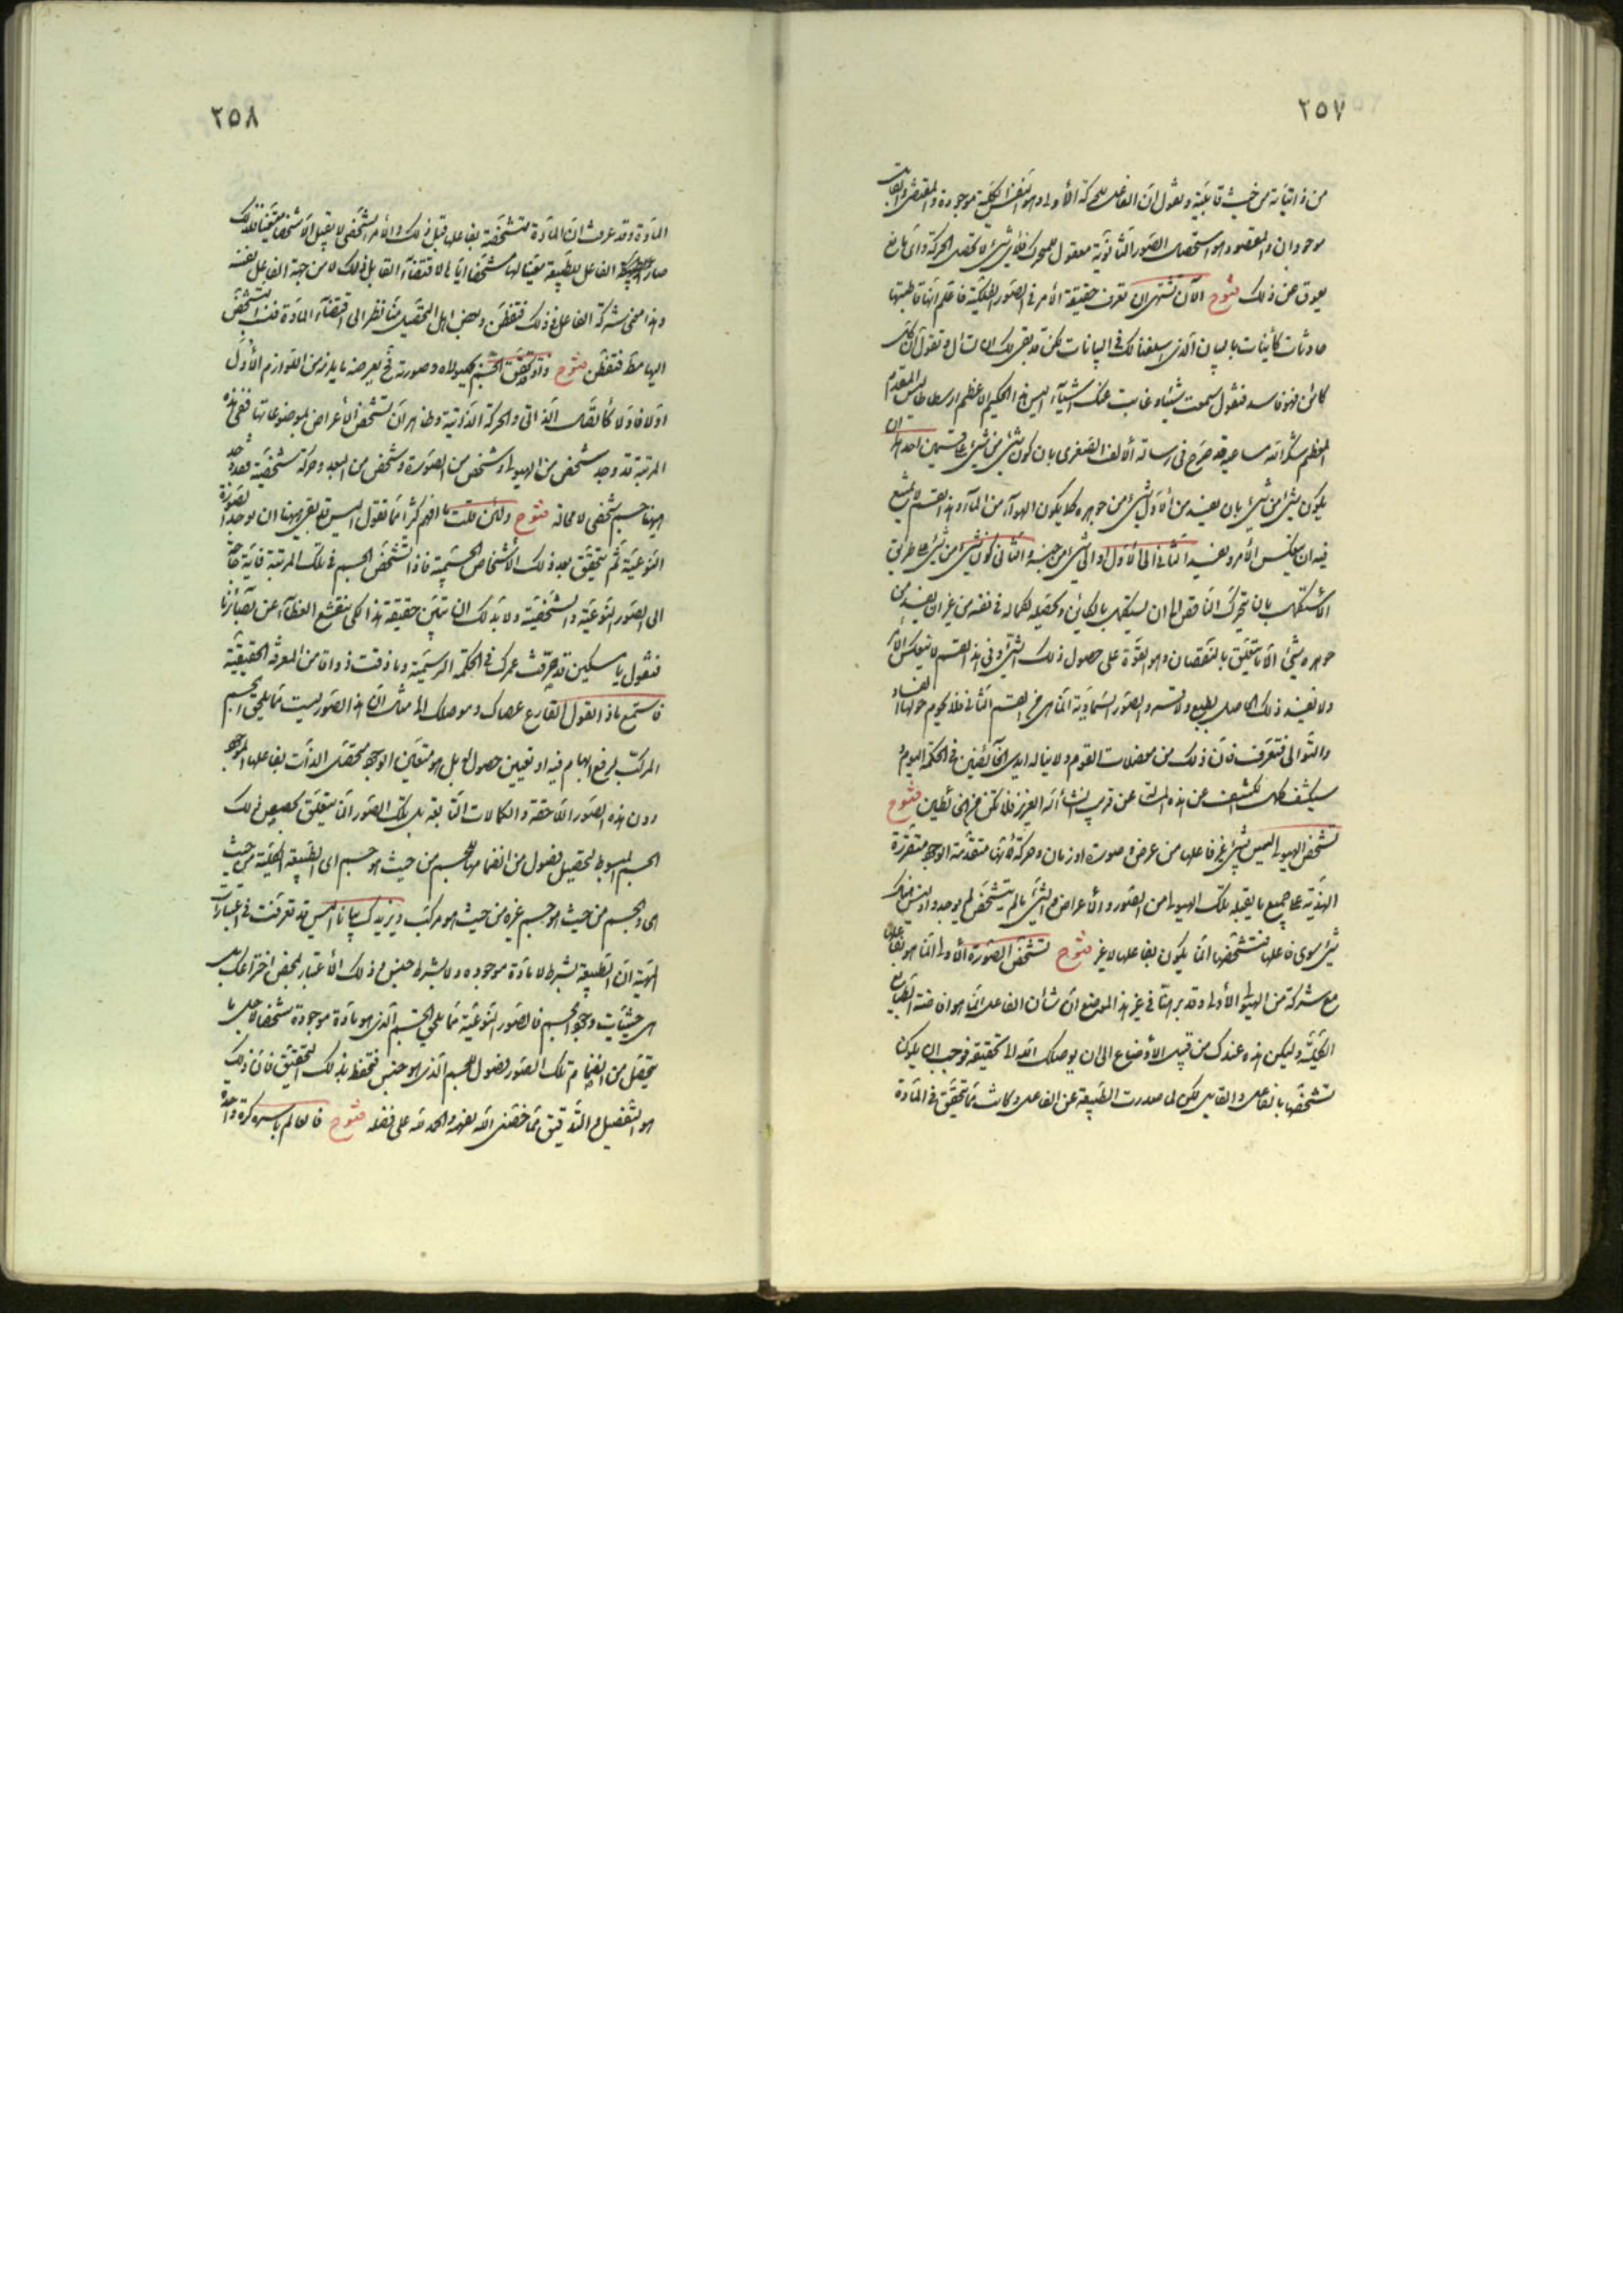 ٢٥٧
من ذاتياته من حيث قابليته ونقول ان الفاعل للحركة الأولى وهو النفس الكلية موجودة والمقتضى والقابل
موجودان والمقصود هو استحصال الصور الثانوية معقول للمحرك فلأي شيء لا تحصل الحركة وأي مانع
يعوق عن ذلك فتوح الآن تشتهي ان تعرف حقيقة الأمر في الصور الفلكية فاعلم انها قاطبتها
حادثات كائنات بالبيان الذي اسلفنا لك في البيانات لكن قد بقي لك ان تسأل وتقول ان كل
كائن فهو فاسد فنقول سمعت شيئا وغابت عنك اشياء اليس هذا الحكيم الأعظم ارسطاطاليس المقدم
المعظم شكر الله مساعيه قد صرح في رسالة الألف الصغرى بان كون شيء من شيء على قسمين احدهما ان
يكون شيء من شيء بان يفسد من الأول شيء من جوهره كما يكون الهواء من الماء وهذا القسم لا يمتنع
فيه ان ينعكس الأمر ويفسد الثاني الى الأول او الى شيء من جنسه والثاني كون شيء من شيء على طريق
الأستكمال بان يتحرك الناقص الى ان يستكمل بالكائن وتحصيله لكماله في نفسه من غير ان يفسد من
جوهره شيء الا ما يتعلق بالنقصان وهو القوة على حصول ذلك الشيء وفي هذا القسم لا ينعكس الأمر
ولا يفسد ذلك الحاصل بالطبع ولا بقسر والصور السماوية انما هي من القسم الثاني فلا يحوم حولها الفساد
والتوالي فتعرف فان ذلك من معضلات القوم ولا يناله ايدي الخائضين في الحكمة اليوم
سيكشف لك نكشف عن هذه المسألة عن قريب انشاء الله العزيز فلا تكن من الخائطين فتوح
تشخص الهيولى ليس بشيء غير فاعلها من عرض وصورة او زمان وحركة لأنها متقدمة الوجود متقررة
الهذية على جميع ما يقبله تلك الهيولى من الصور والأعراض والشيء ما لم يتشخص لم يوجد وليس هناك
شيء سوى فاعلها فتشخصها انما يكون بفاعلها لا غير فتوح تشخص الصورة الأولى انما هو بفاعلها
مع شركة من الهيولى الأولى وقد برهنا في غير هذا الموضع ان شأن الفاعل انما هو افاضة الطبايع
الكلية وليكن هذه عندك من قبيل الأوضاع الى ان يوصلك الله الى تحقيقه فوجب ان يكون
تشخصها بالفاعل والقابل لكن لما صدرت الطبيعة عن الفاعل وكانت مما تتحقق في المادة
٢٥٨
المادة وقد عرفت ان المادة متشخصة بفاعلها قبل ذلك والأمر الشخصي لا يقبل الا شخصا متعينا فلذلك
صار الفاعل للطبيعة معينا لها مشخصا اياها لاقتضاء القابل ذلك لا من جهة الفاعل نفسه
وهذا معنى شركة الفاعل في ذلك فتفطن وبعض اهل التحصيل منا نظر الى اقتضاء المادة فنسب التشخص
اليها فقط فتفطن فتوح واذا تحقق الجسم بهيولاه وصورته فح يعرضه ما يلزمه من اللوازم الأول
اولا فاولا كالمقدار الذاتي والحركة الذاتية وظاهر ان تشخص الأعراض بموضوعاتها ففي هذه
المرتبة قد وجد شخص من الهيولى وشخص من الصورة وشخص من البعد وحركة شخصية فقد وجد
ههنا جسم شخصي لا محالة فتوح ولئن قلت ما افهم كثيرا مما تقول اليس قد بقي ههنا ان يوجد الصورة
النوعية ثم يتحقق بعد ذلك الأشخاص الجسمية فاذا تشخص الجسم في تلك المرتبة فاية حاجة
الى الصور النوعية والشخصية ولا بد لك ان تبين حقيقة هذا لكي ينقشع الغطاء عن بصائرنا
فنقول يا مسكين قد صرفت عمرك في الحكمة الرسمية وما ذقت ذواقا من المعرفة الحقيقية
فاستمع ماذا القول القارع عصاك وموصلك الى مناك ان هذه الصور ليست مما يلحق الجسم
المركب لرفع ابهام فيه او تعيين حصول له بل هو متعين الوجود متحصل الذات بفاعلها الموجود
دون هذه الصور اللاحقة والكمالات التابعة بل تلك الصور انما يتعلق تحصيص ذلك
الجسم المبسوط لتحصيل فصول من انضمامها للجسم من حيث هو جسم اى الطبيعة الجنسية من حيث
هى والجسم من حيث هو جسم غيره من حيث هو مركب ويزيدك بيانا اليس قد تعرفت في اعتبارات
المهية ان الطبيعة بشرط لا مادة موجودة ولا بشرط جنس وذلك الأعتبار لمحض اختراعك بل
هى حيثيات وجود الجسم فالصور النوعية مما يلحق الجسم الذي هو مادة موجودة متشخصا بل ما
يتحصل من انضمام تلك الصور فصول للجسم الذي هو جنس فتحفظ بذلك التحقيق فان ذلك
هو التفصيل والتدقيق مما خصني الله بفهمه والحمد لله على فضله فتوح فالعالم باسره كرة واحدة